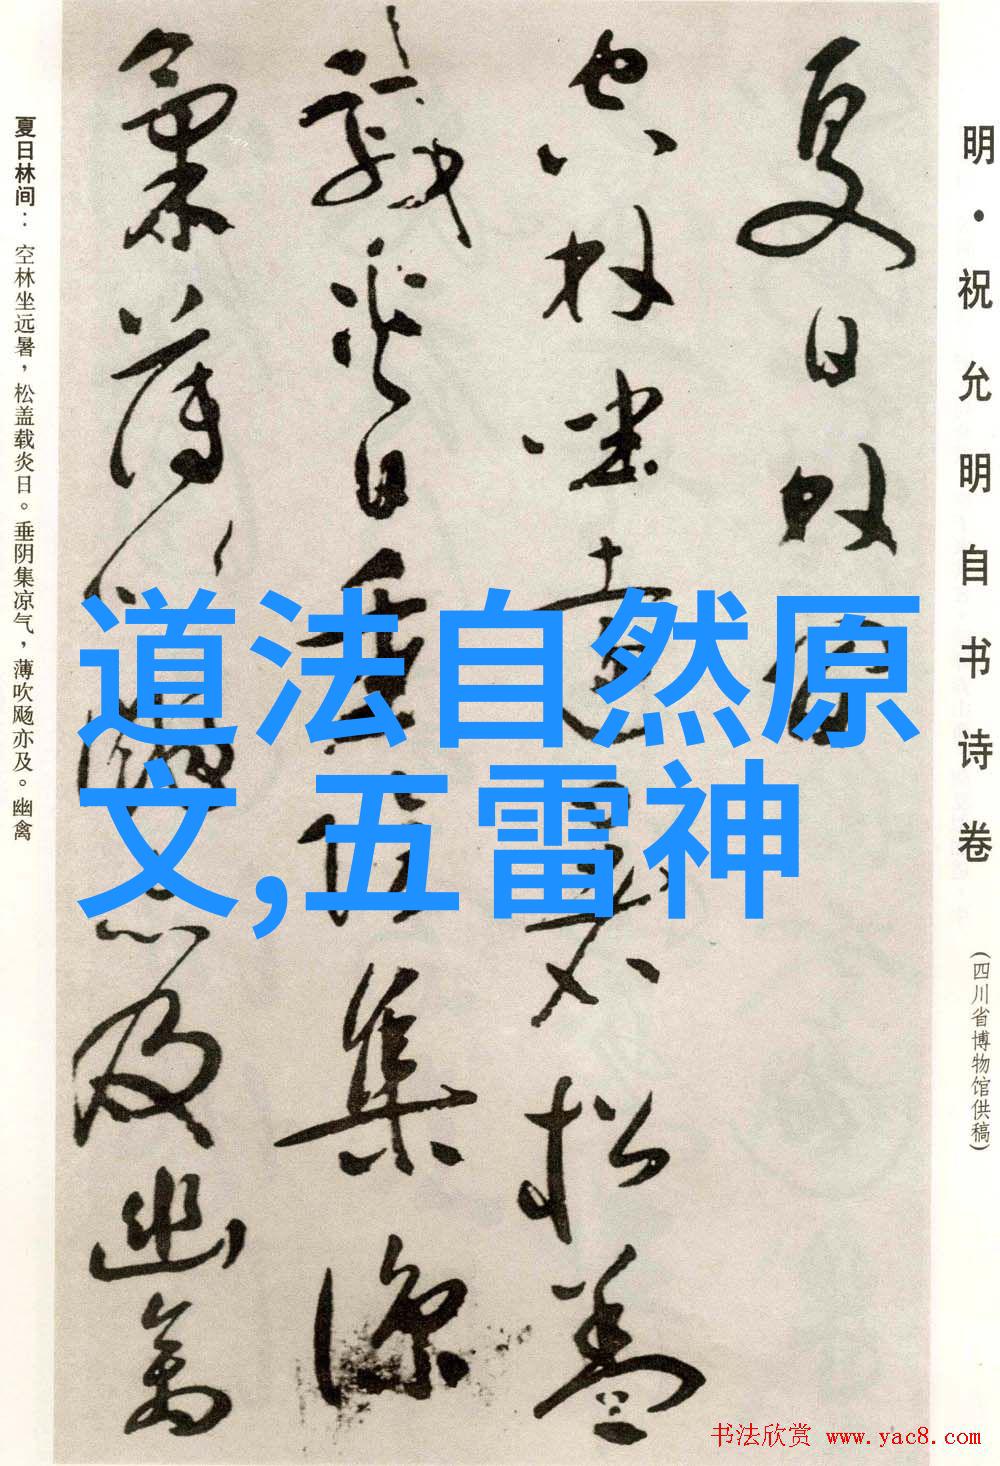 明·祝允明自书诗卷
(四川省博物馆供稿)
夏日林间
空林坐远暑松盖
载炎日垂阴集凉
气薄吹飏亦及幽禽
夏日林间：空林坐远暑，松盖载炎日。垂阴集凉气，薄吹飏亦及。幽禽
道法自然原
文,五雷神
书法欣赏 www.yac8.com